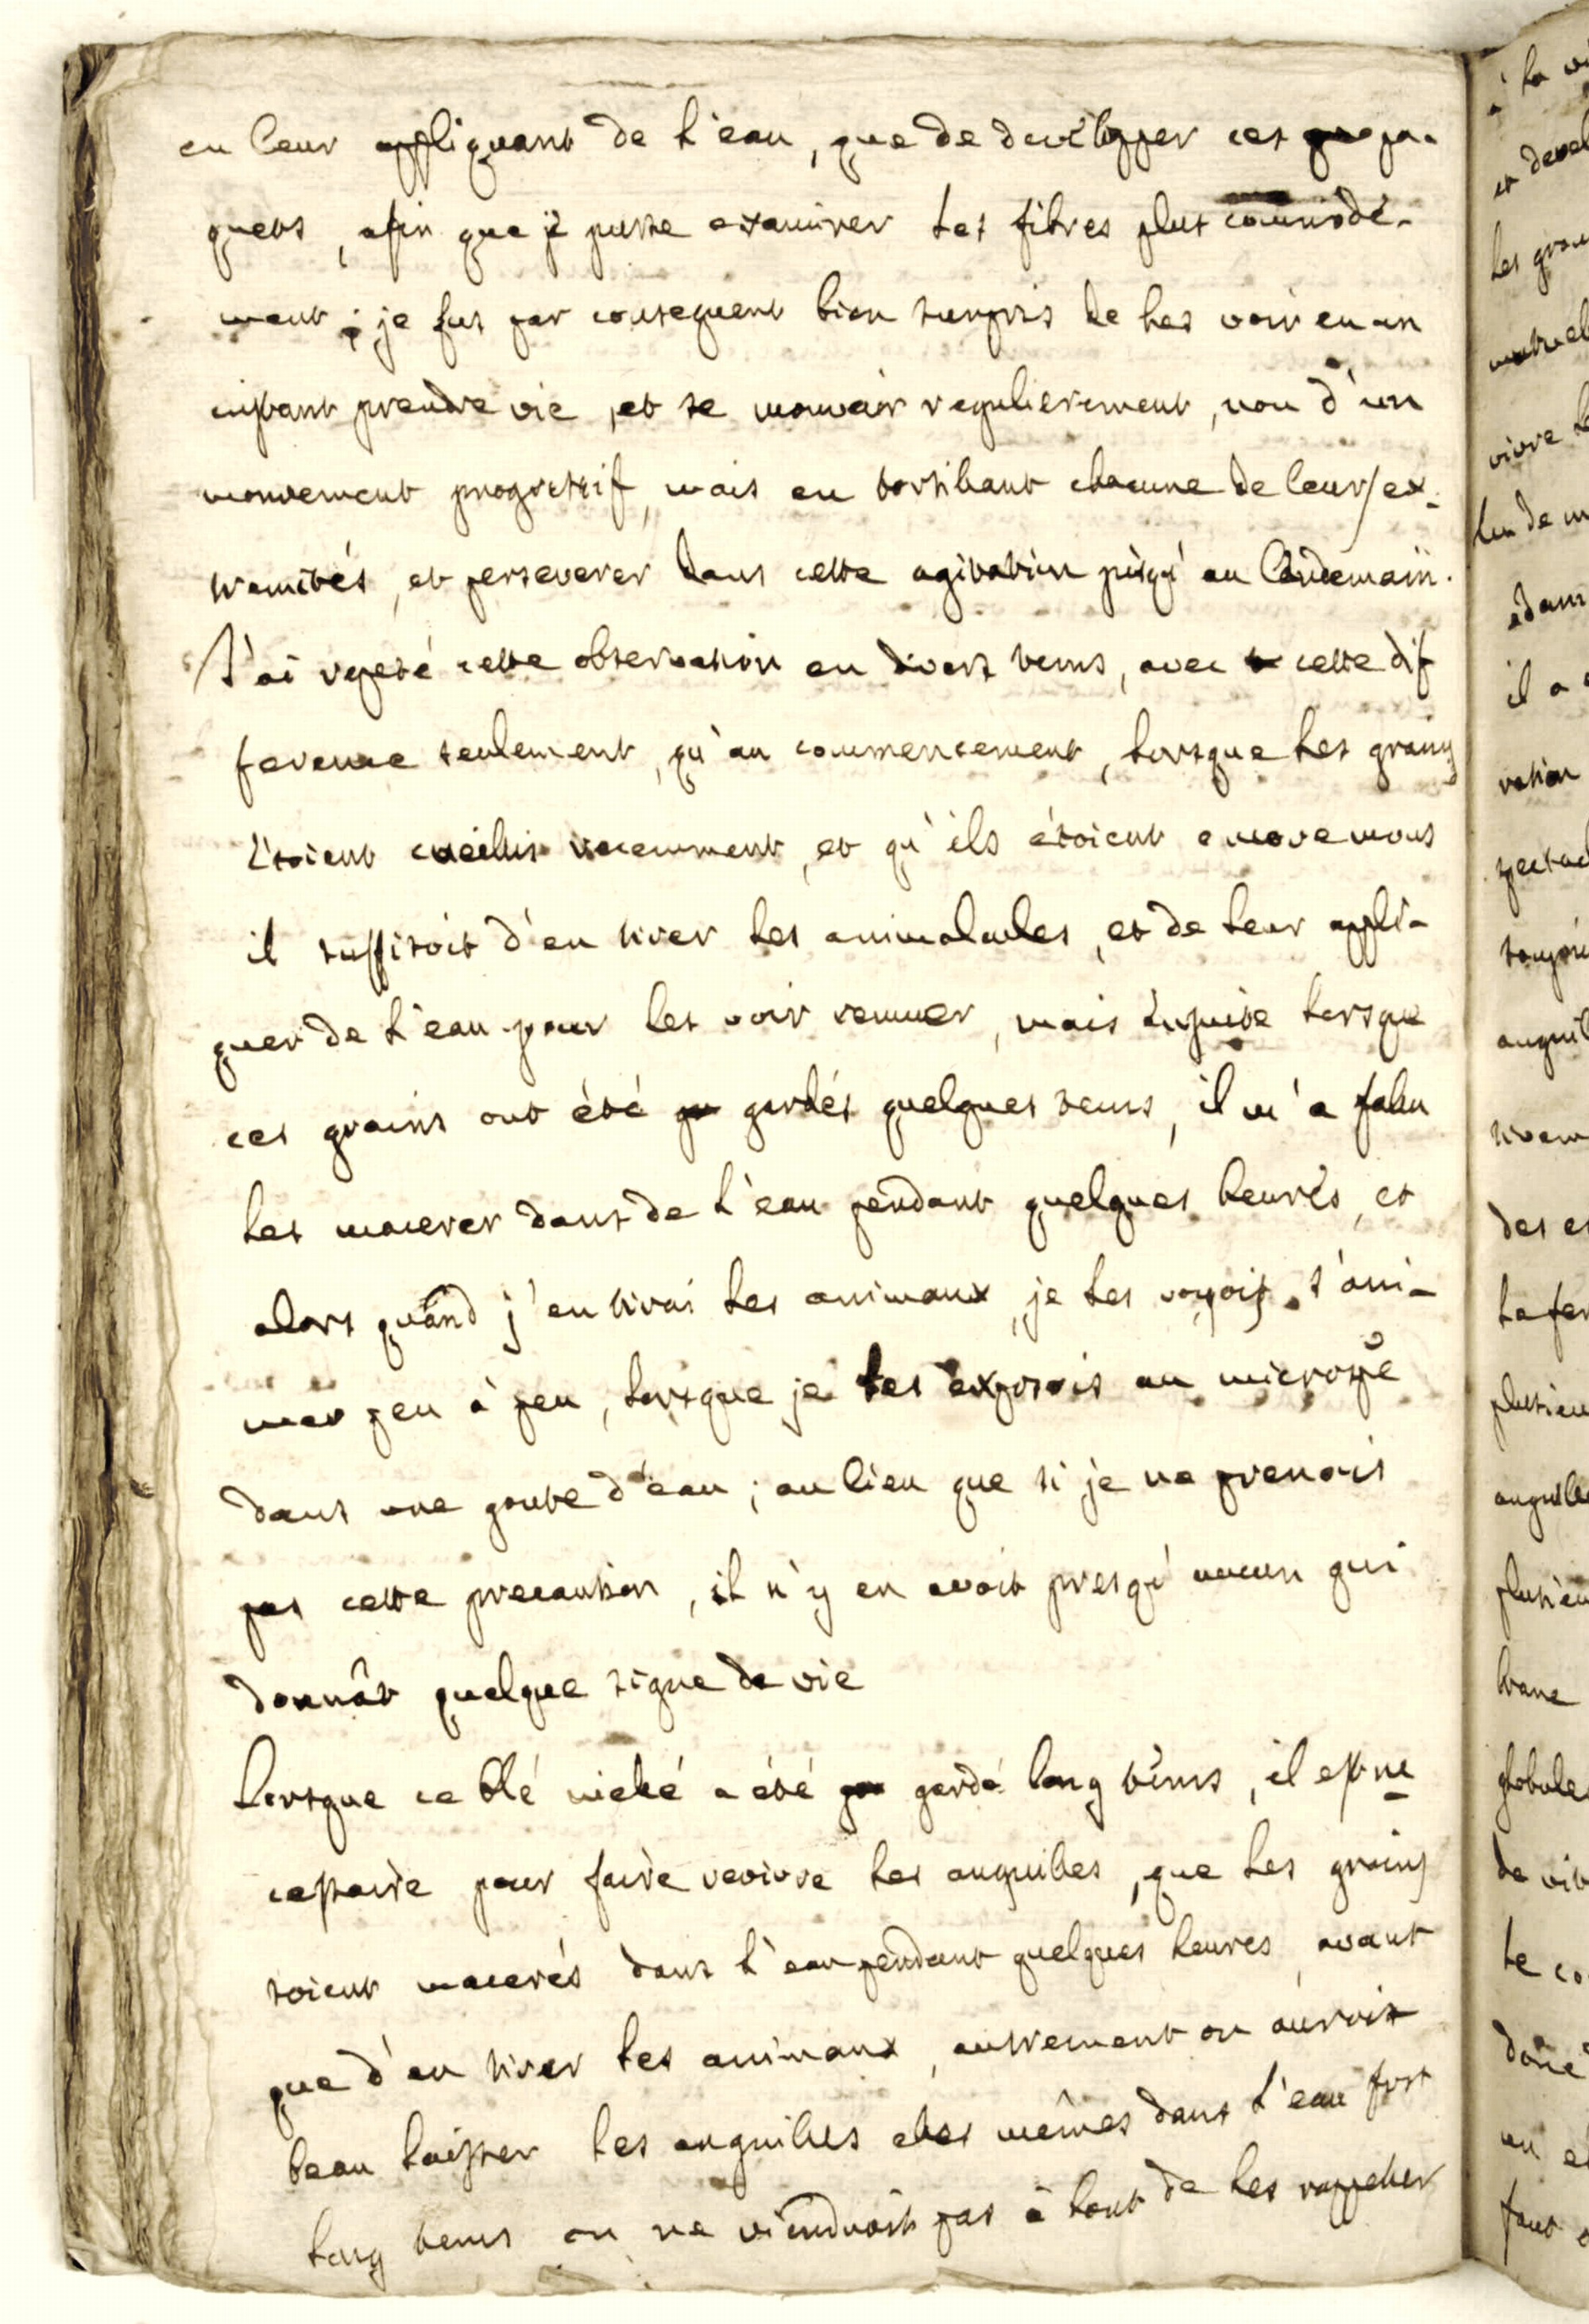 en leur appliquant de l'eau, que de développer ces pa-
quets, afin que je pusse examiner les fibres plus commodé-
ment; je fus par consequent bien surpris de les voir en un
instant prendre vie, et se mouvoir regulierement, non d'un
mouvement progressif, mais en tortillant chacune de leurs ex-
tremités, et perseverer dans cette agitation jusqu'au lendemain.
J'ai repeté cette observation en divers tems, avec cette dif
ference seulement, qu'au commencement, lorsque les grains
étoient cueillis recemment, et qu'ils étoient encore mous
il suffisoit d'en tirer les animalcules, et de leur appli-
quer de l'eau pour les voir remuer, mais ensuite lorsque
ces grains ont été gardés quelques tems, il m'a falu
les macerer dans de l'eau pendant quelques heures, et
alors quand j'en tirai les animaux, je les voyois s'ani-
mer peu à peu, lorsque je les exposois au microspe
dans une goute d'eau; au lieu que si je ne prenois
pas cette precaution, il n'y en avoit presqu'aucun qui
donnât quelque signe de vie
Lorsque ce blé niélé a été gardé long tems, il est ne
cessaire pour faire revivre les anguilles, que les grains
soient macerés dans l'eau pendant quelques heures, avant
que d'en tirer les animaux, autrement on auroit
beau laisser les anguilles elles mêmes dans l'eau fort
long tems on ne viendroit pas à bout de les rappeller
à la vi
et devel
les grai
vivre
il a
vation
spectac
anguil
des
la fer
plusieu
anguille
plusieu
globule
de
le co